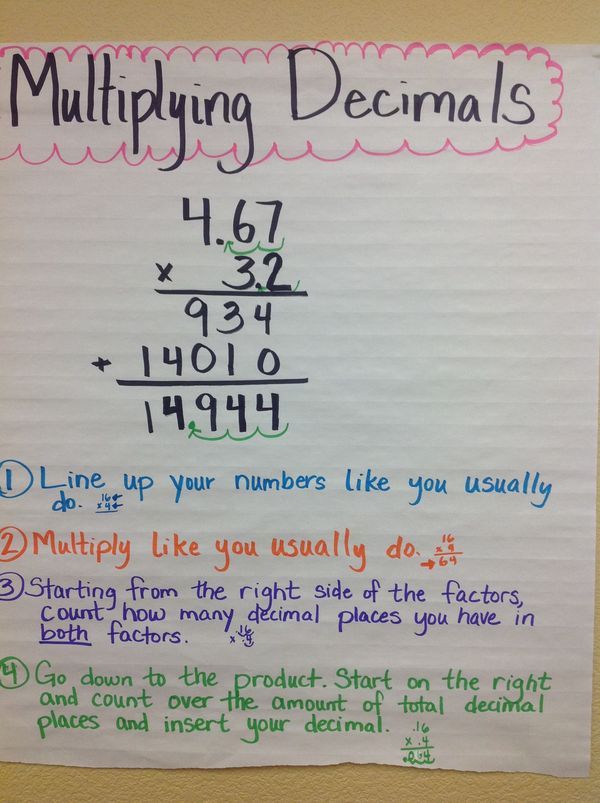 Multiplying Decimals
4.67
x 3.2
934
+ 14010
14.944
① Line up your numbers like you usually
do. .16
x .4
② Multiply like you usually do. 16
x 4
→ 64
③ Starting from the right side of the factors,
count how many decimal places you have in
both factors. .16
x .4
④ Go down to the product. Start on the right
and count over the amount of total decimal
places and insert your decimal.
.16
x .4